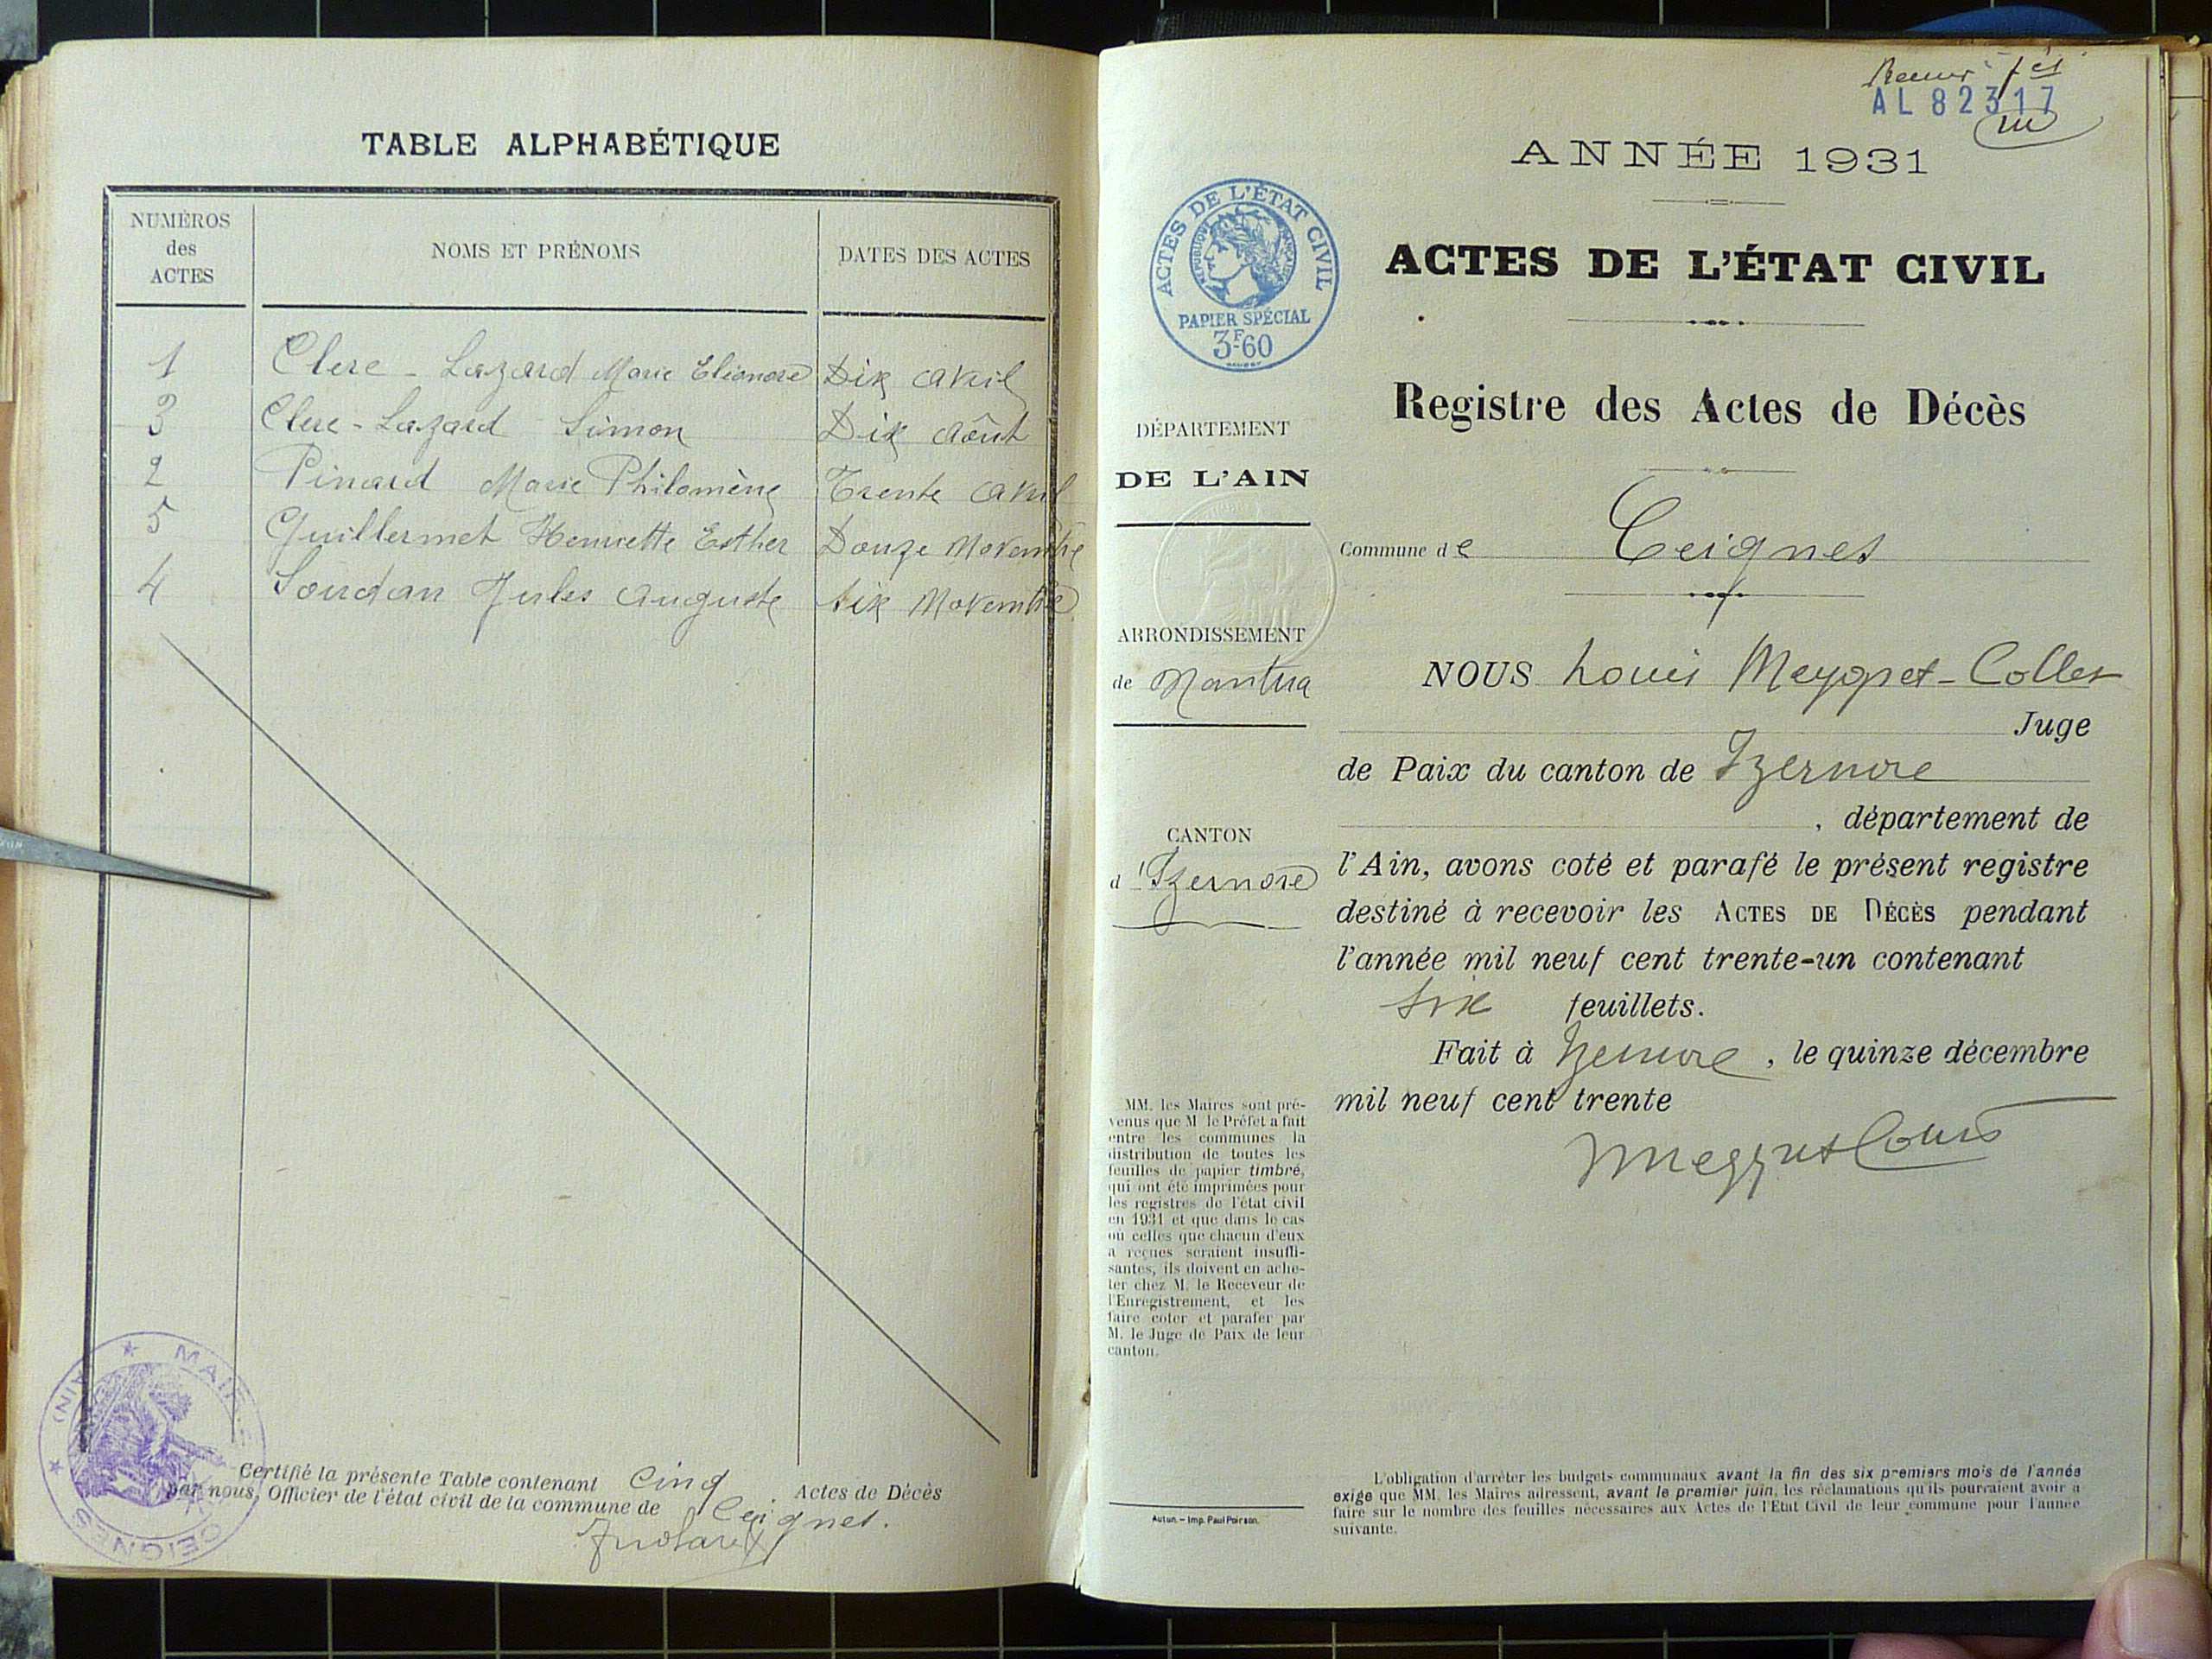 TABLE ALPHABÉTIQUE
NUMÉROS
des
ACTES
NOMS ET PRÉNOMS
DATES DES ACTES
1 Clerc - Lazard Marie Eléonore Dix avril
3 Clerc - Lazard Simon Dix août
2 Pinard Marie Philomène Trente avril
5 Guillermet Henriette Esther Douze Novembre
4 Sourdan Jules Auguste Six Novembre
MAIRIE CEIGNES (AIN)
Certifié la présente Table contenant Cinq Actes de Décès
par nous, Officier de l'état civil de la commune de Ceignes.
AL 82317
ANNÉE 1931
ACTES DE L'ÉTAT CIVIL
RÉPUBLIQUE FRANÇAISE
PAPIER SPÉCIAL
3F60
ACTES DE L'ÉTAT CIVIL
Registre des Actes de Décès
DÉPARTEMENT
DE L'AIN
Commune de Ceignes
ARRONDISSEMENT
de Nantua
NOUS Louis Meygret-Collet
Juge
de Paix du canton de Izernore
, département de
CANTON
d'Izernore
l'Ain, avons coté et parafé le présent registre
destiné à recevoir les ACTES DE DÉCÈS pendant
l'année mil neuf cent trente-un contenant
six feuillets.
Fait à Izernore, le quinze décembre
mil neuf cent trente
MM. les Maires sont pré-
venus que M le Préfet a fait
entre les communes la
distribution de toutes les
feuilles de papier timbré,
qui ont été imprimées pour
les registres de l'état civil
en 1931 et que dans le cas
où celles que chacun d'eux
a reçues seraient insuffi-
santes, ils doivent en ache-
ter chez M. le Receveur de
l'Enregistrement, et les
faire coter et parafer par
M. le Juge de Paix de leur
canton.
Autun. - Imp. Paul Poirson.
L'obligation d'arrêter les budgets communaux avant la fin des six premiers mois de l'année
exige que MM. les Maires adressent, avant le premier juin, les réclamations qu'ils pourraient avoir à
faire sur le nombre des feuilles nécessaires aux Actes de l'Etat Civil de leur commune pour l'année
suivante.